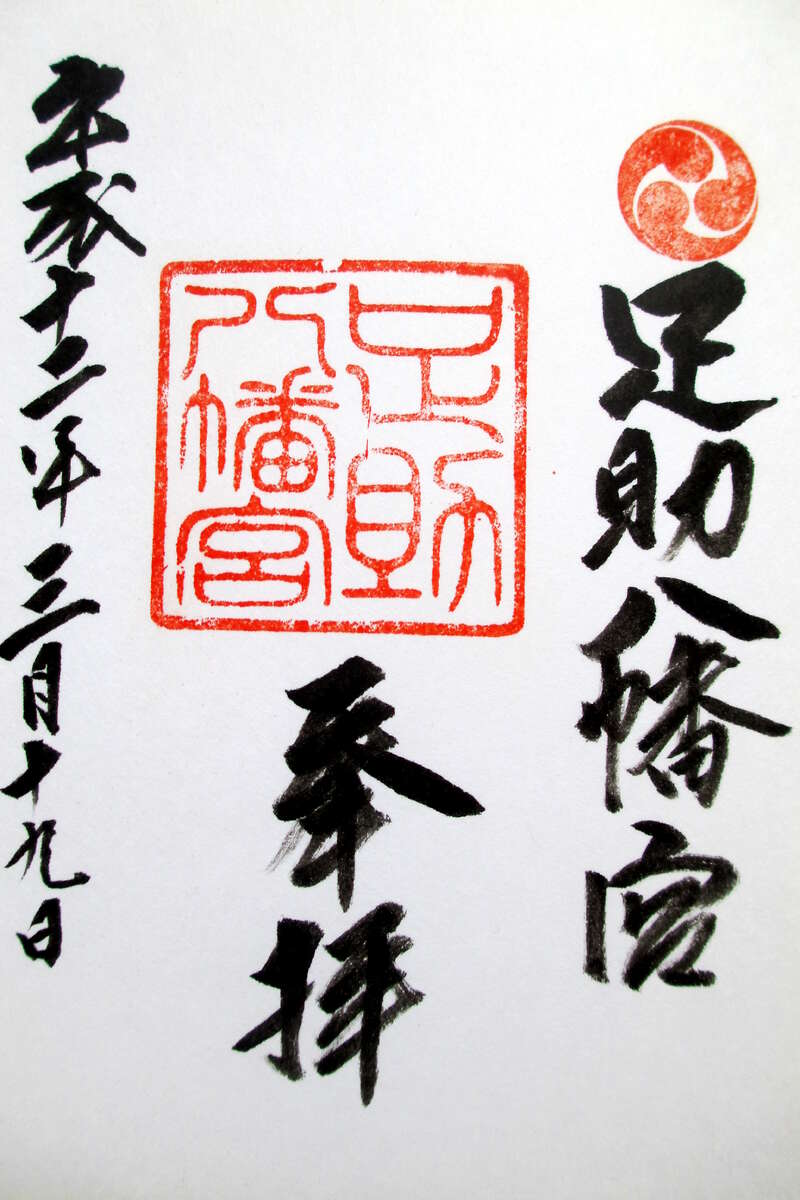 足助八幡宮
足助
八幡宮
奉拝
平成十二年三月十九日